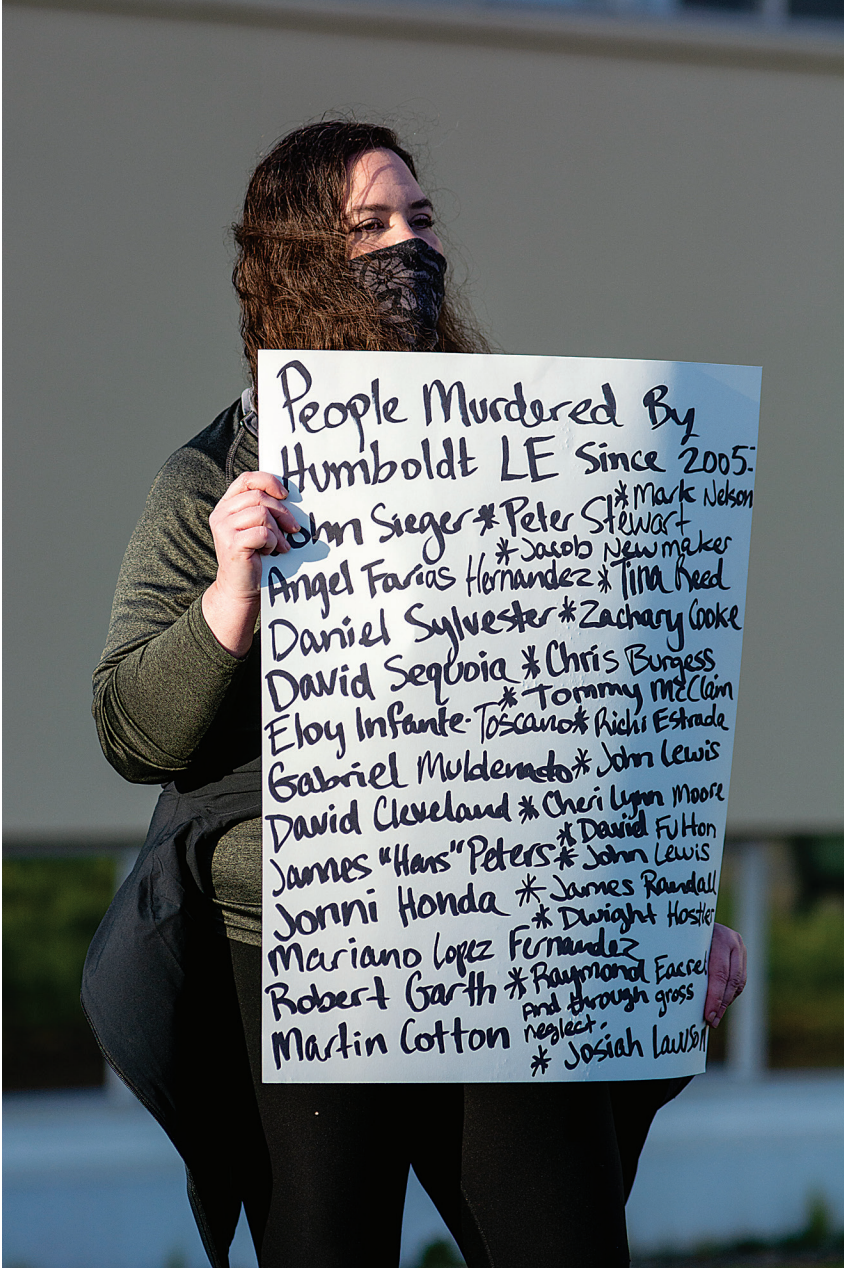 People Murdered By
Humboldt LE Since 2005:
* Mark Nelson
John Sieger * Peter Stewart
* Jacob Newmaker
Angel Farias Hernandez * Tina Reed
Daniel Sylvester * Zachary Cooke
David Sequoia * Chris Burgess
* Tommy McClain
Eloy Infante-Toscano * Richi Estrada
Gabriel Muldenado * John Lewis
David Cleveland * Cheri Lynn Moore
* David Fulton
James "Hans" Peters * John Lewis
Jonni Honda * James Randall
* Dwight Hostler
Mariano Lopez Fernandez
Robert Garth * Raymond Eacret
And through gross
neglect:
Martin Cotton
* Josiah Lawson